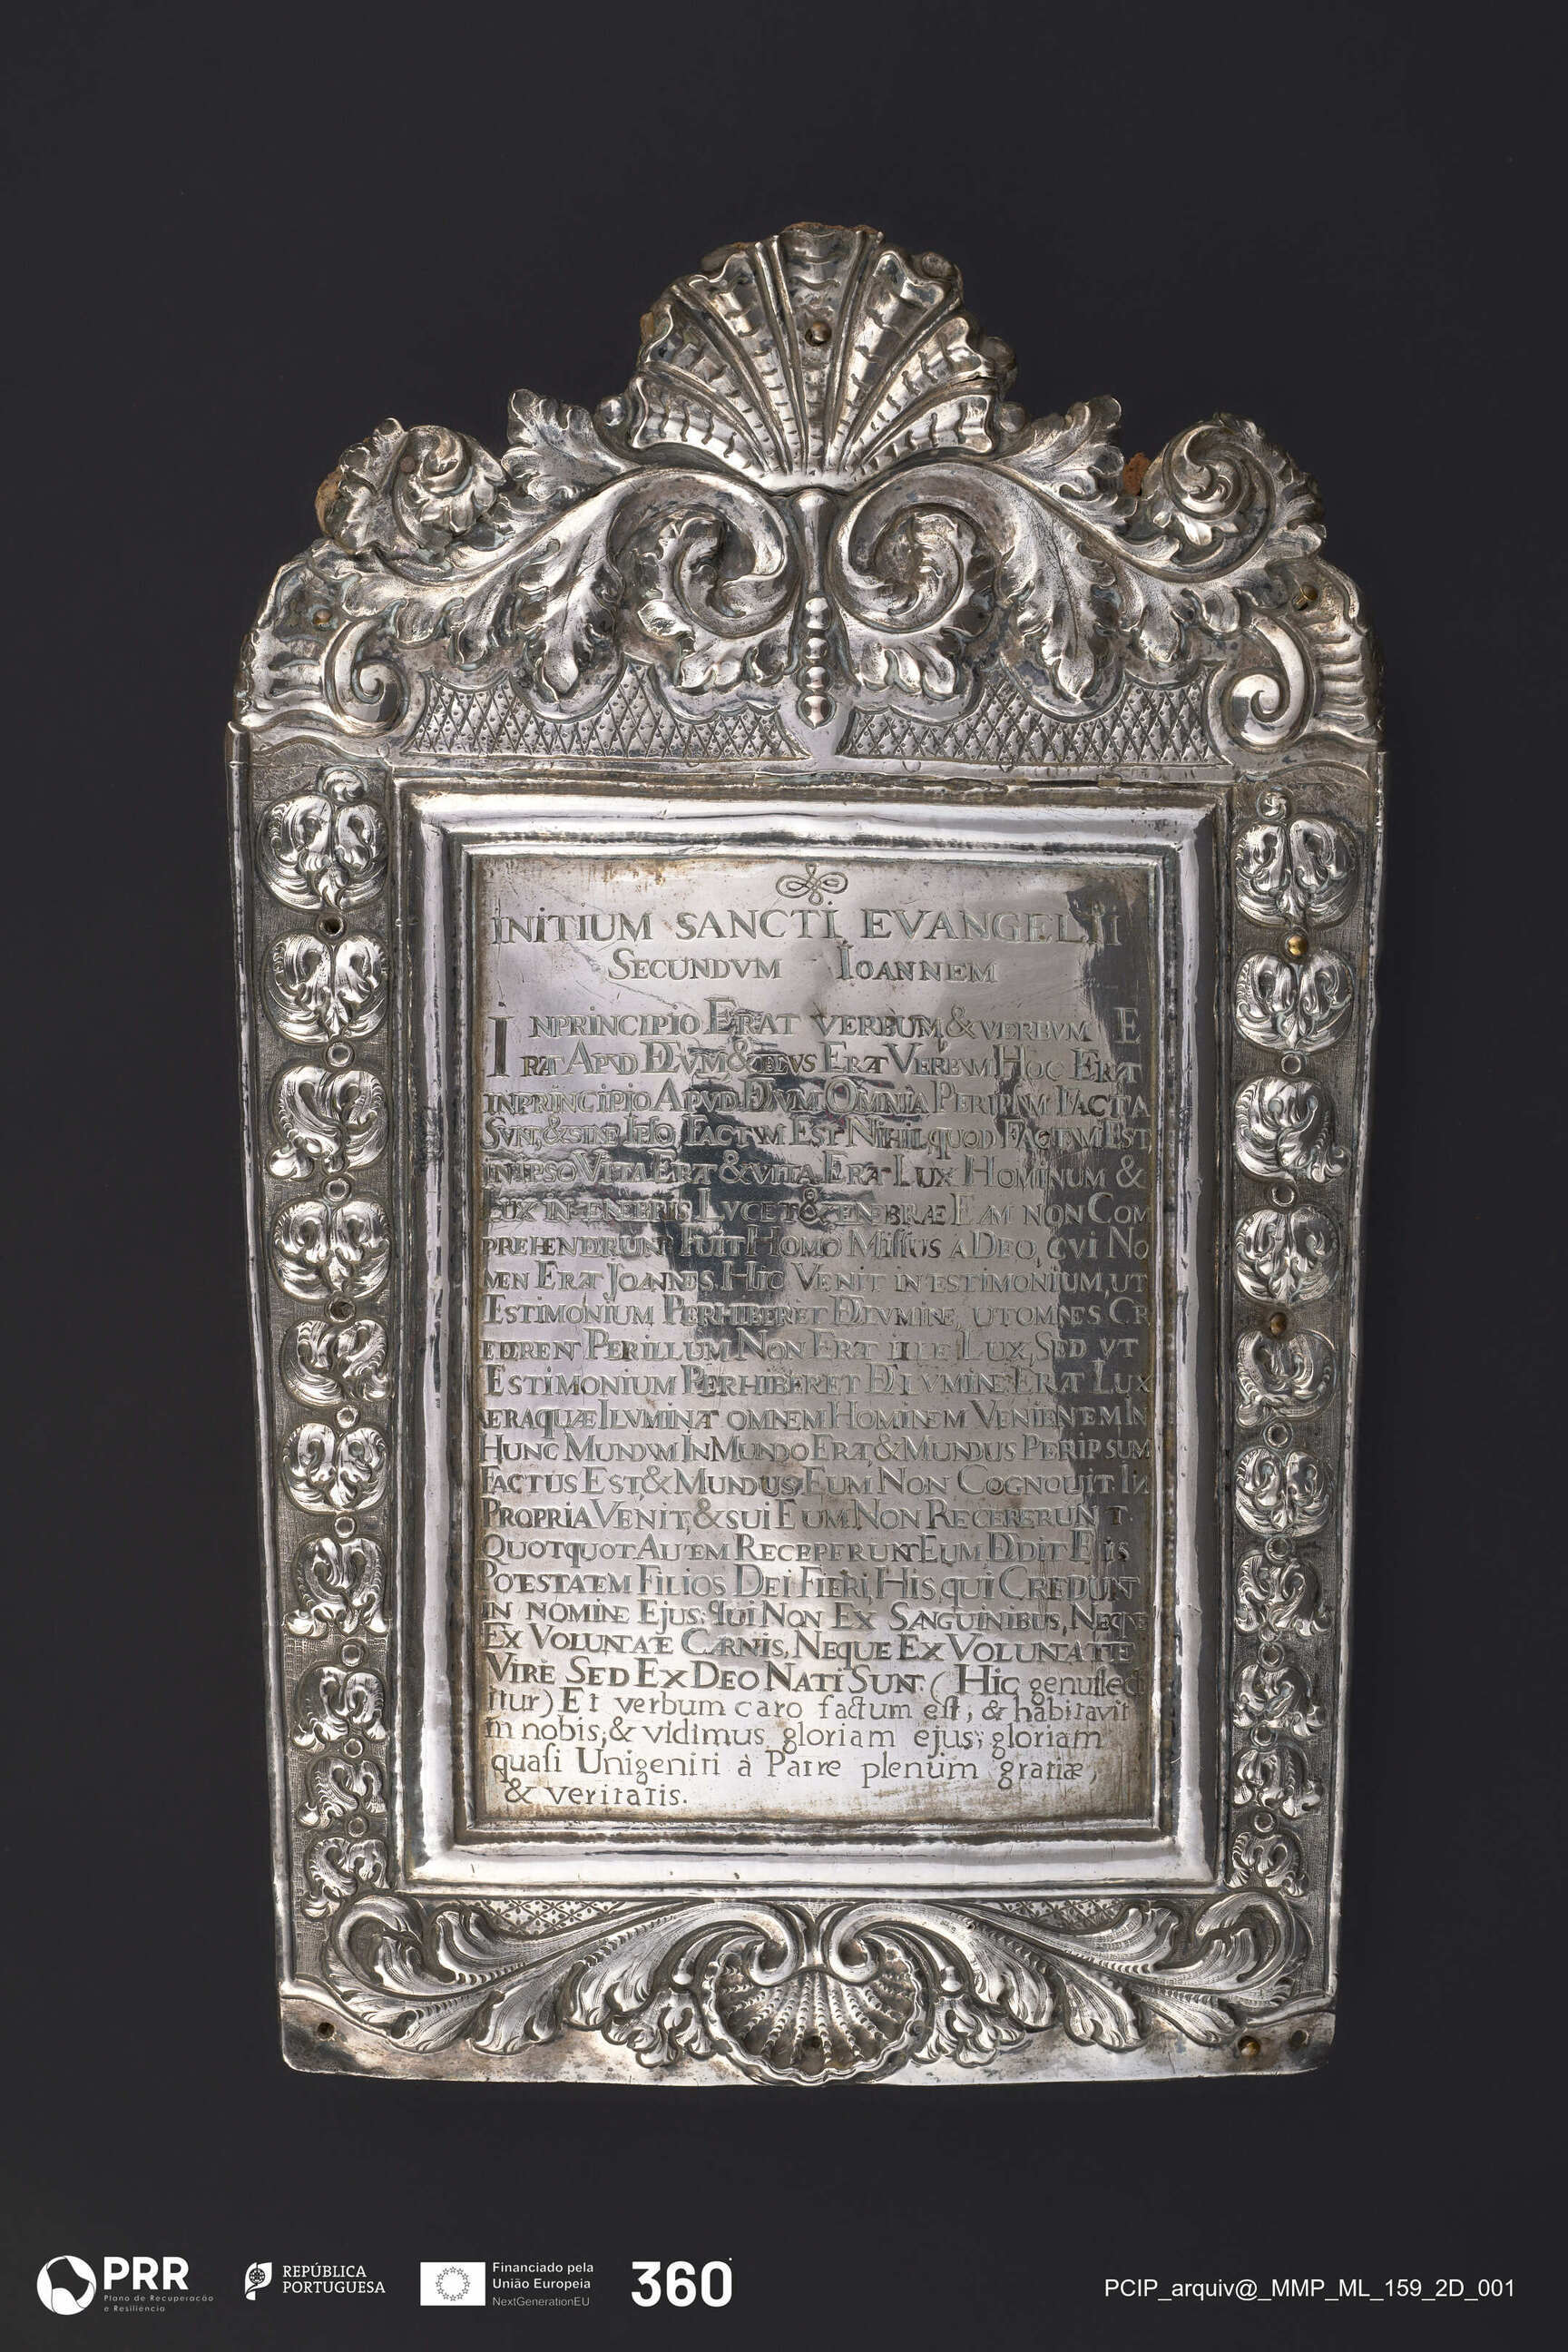 INITIUM SANCTI EVANGELII
SECUNDVM IOANNEM
INPRINCIPIO ERAT VERBUM & VERBVM E
RAT APVD DEVM & DEVS ERAT VERBVM HOC ERAT
INPRINCIPIO APVD DEVM OMNIA PERIPSVM FACTA
SVNT, & SINE IPSO FACTVM EST NIHIL, quOD FACTVM EST,
INIPSO VITA ERAT & VITA ERAT LUX HOMINUM &
LUX INTENEBRIS LVCET & TENEBRÆ EAM NON COM
PREHENDERUNT FUIT HOMO MISSUS A DEO, CVI NO
MEN ERAT JOANNES. HIC VENIT INTESTIMONIUM, UT
TESTIMONIUM PERHIBERET DE LVMINE, UTOMNES CR
EDEREN PERILLUM NON ERAT ILLE LUX, SED VT
TESTIMONIUM PERHIBERET DE LVMINE ERAT LUX
VERA quÆ ILVMINAT OMNEM HOMINEM VENIENTEM IN
HUNC MUNDVM IN MUNDO ERAT & MUNDUS PERIPSUM
FACTUS EST, & MUNDUS EUM NON COGNOUIT. IN
PROPRIA VENIT, & SUI EUM NON RECEPERUNT.
QUOTQUOT AUTEM RECEPERUNT EUM DEDIT EIIS
POTESTATEM FILIOS DEI FIERI, HIS, qUI CREDUNT
IN NOMINE EJUS: qUI NON EX SANGUINIBUS, NEQUE
EX VOLUNTATE CARNIS, NEQUE EX VOLUNTATTE
VIRE SED EX DEO NATI SUNT. (HIC genuflect
itur) Et verbum caro factum est, & habitavit
in nobis, & vidimus gloriam ejus; gloriam
quasi Unigeniti à Patre plenum gratiæ,
& veritatis.
PRR
Plano de Recuperação
e Resiliência
REPÚBLICA
PORTUGUESA
Financiado pela
União Europeia
NextGenerationEU
360
PCIP_arquiv@_MMP_ML_159_2D_001